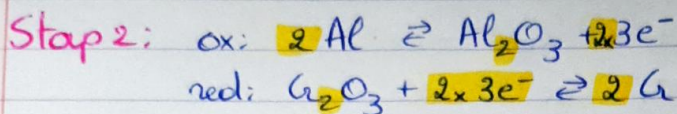 Stap 2: ox: 2 Al ⇄ Al₂O₃ + 2x3e⁻
red: Cr₂O₃ + 2x 3e⁻ ⇄ 2 Cr